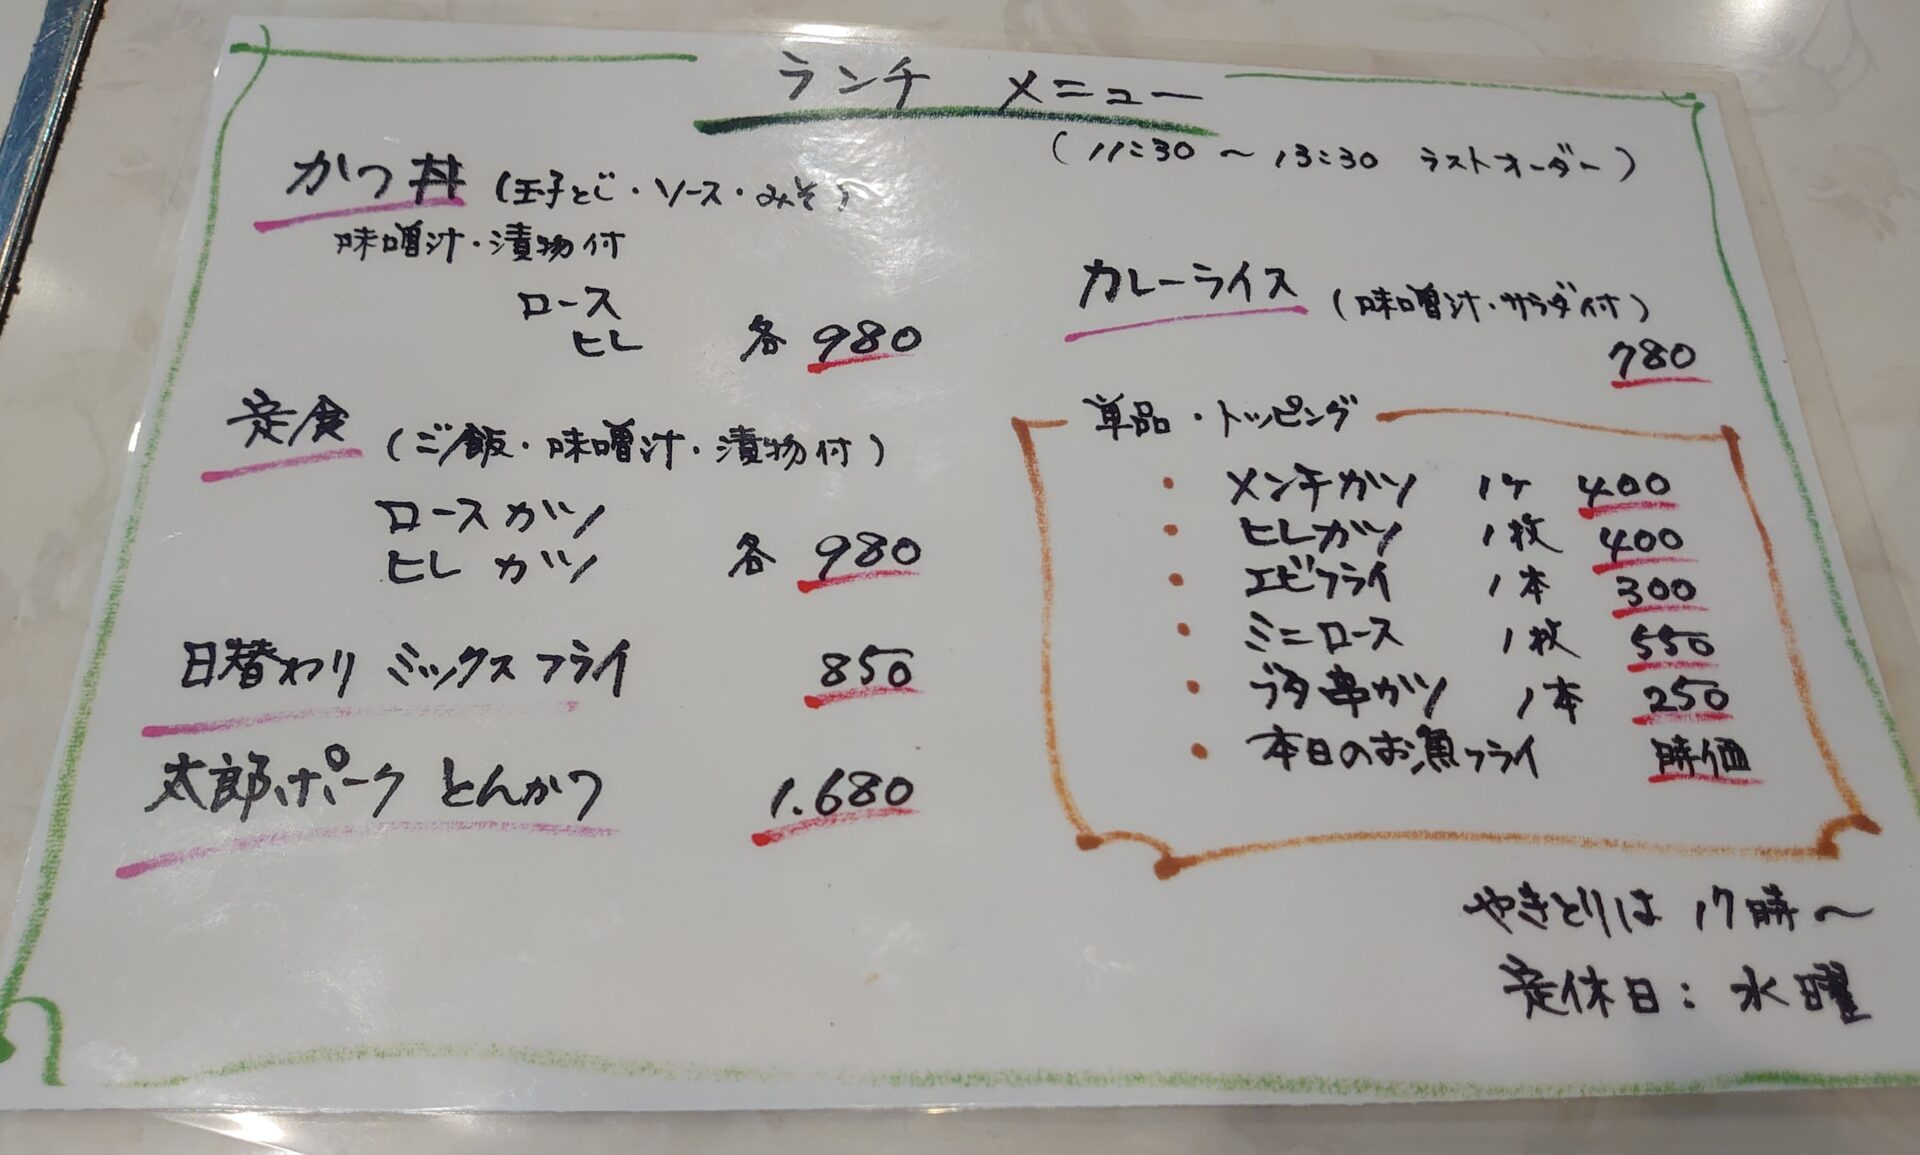 ランチ メニュー
(11:30 ~ 13:30 ラストオーダー)
かつ丼 (玉子とじ・ソース・みそ)
味噌汁・漬物付
ロース
ヒレ 各 980
定食 (ご飯・味噌汁・漬物付)
ロースカツ
ヒレカツ 各 980
日替わり ミックスフライ 850
太郎ポーク とんかつ 1.680
カレーライス (味噌汁・サラダ付)
780
単品・トッピング
・ メンチカツ 1ケ 400
・ ヒレカツ 1枚 400
・ エビフライ 1本 300
・ ミニロース 1枚 550
・ ブタ串カツ 1本 250
・ 本日のお魚フライ 時価
やきとりは 17時~
定休日: 水曜